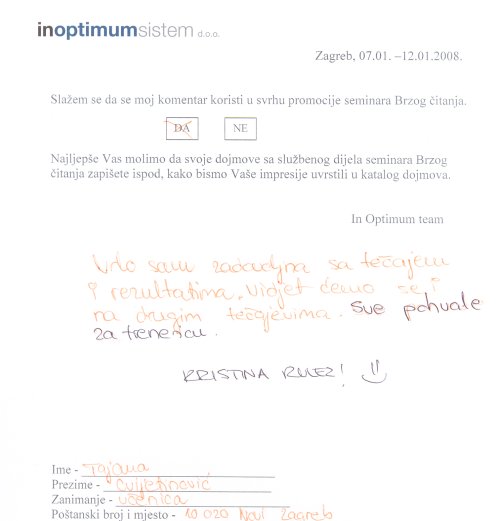 inoptimumsistem d.o.o.
Zagreb, 07.01. –12.01.2008.
Slažem se da se moj komentar koristi u svrhu promocije seminara Brzog čitanja.
DA NE
Najljepše Vas molimo da svoje dojmove sa službenog dijela seminara Brzog
čitanja zapišete ispod, kako bismo Vaše impresije uvrstili u katalog dojmova.
In Optimum team
Vrlo sam zadovoljna sa tečajem
i rezultatima. Vidjet ćemo se i
na drugim tečajevima. Sve pohvale
za trenericu.
KRISTINA RULEZ!
Ime - Tajana
Prezime - Cvijetinović
Zanimanje - učenica
Poštanski broj i mjesto - 10 020 Novi Zagreb